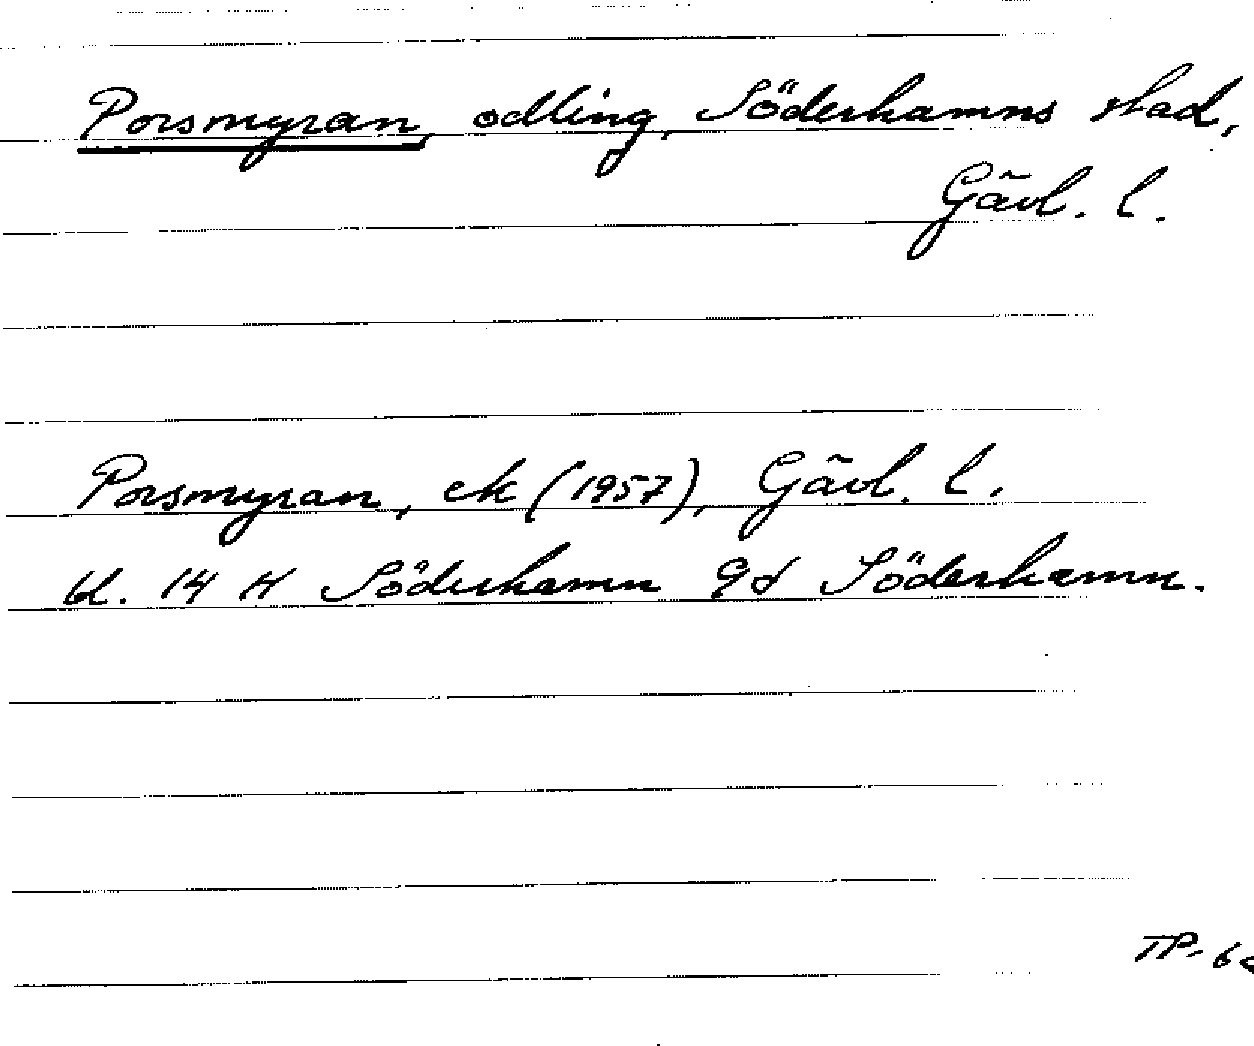 Porsmyran, odling, Söderhamns stad,
Gävl. l.
Porsmyran, ek (1957), Gävl. l.
bl. 14 H Söderhamn 9d Söderhamn.
TP-